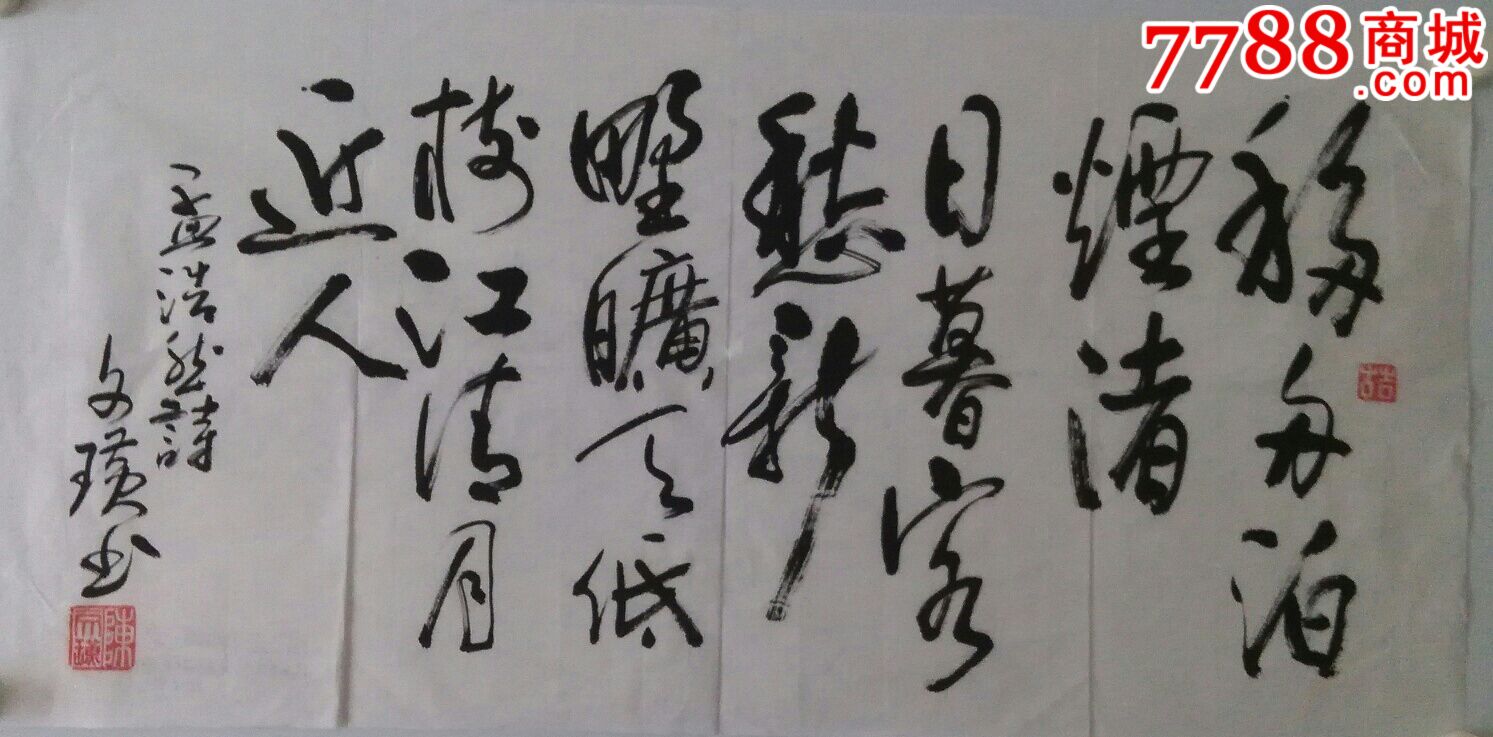 移舟泊
煙渚
日暮客
愁新
野曠天低
樹江清月
近人
孟浩然詩
文璜书
7788商城
.com